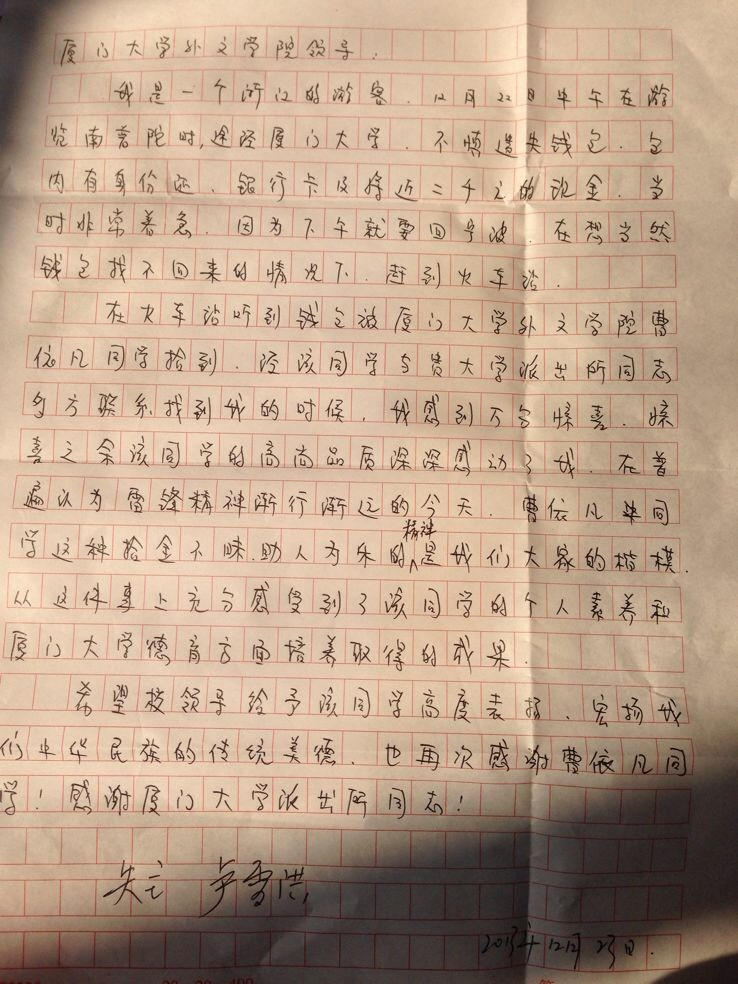 厦门大学外文学院领导.
我是一个浙江的游客. 12月22日中午在游
览南普陀时,途经厦门大学. 不慎遗失钱包. 包
内有身份证. 银行卡及将近二千元的现金. 当
时非常着急. 因为下午就要回宁波. 在想当然
钱包找不回来的情况下. 赶到火车站.
在火车站听到钱包被厦门大学外文学院曹
依凡同学拾到. 经该同学与贵大学派出所同志
多方联系找到我的时候. 我感到万分惊喜. 惊
喜之余该同学的高尚品质深深感动了我. 在普
遍认为雷锋精神渐行渐远的今天. 曹依凡同
学这种拾金不昧.助人为乐的精神是我们大家的楷模.
从这件事上充分感受到了该同学的个人素养和
厦门大学德育方面培养取得的成果.
希望校领导给予该同学高度表扬. 宏扬我
们中华民族的传统美德. 也再次感谢曹依凡同
学! 感谢厦门大学派出所同志!
失主 卢雪洪
2013年12月23日.